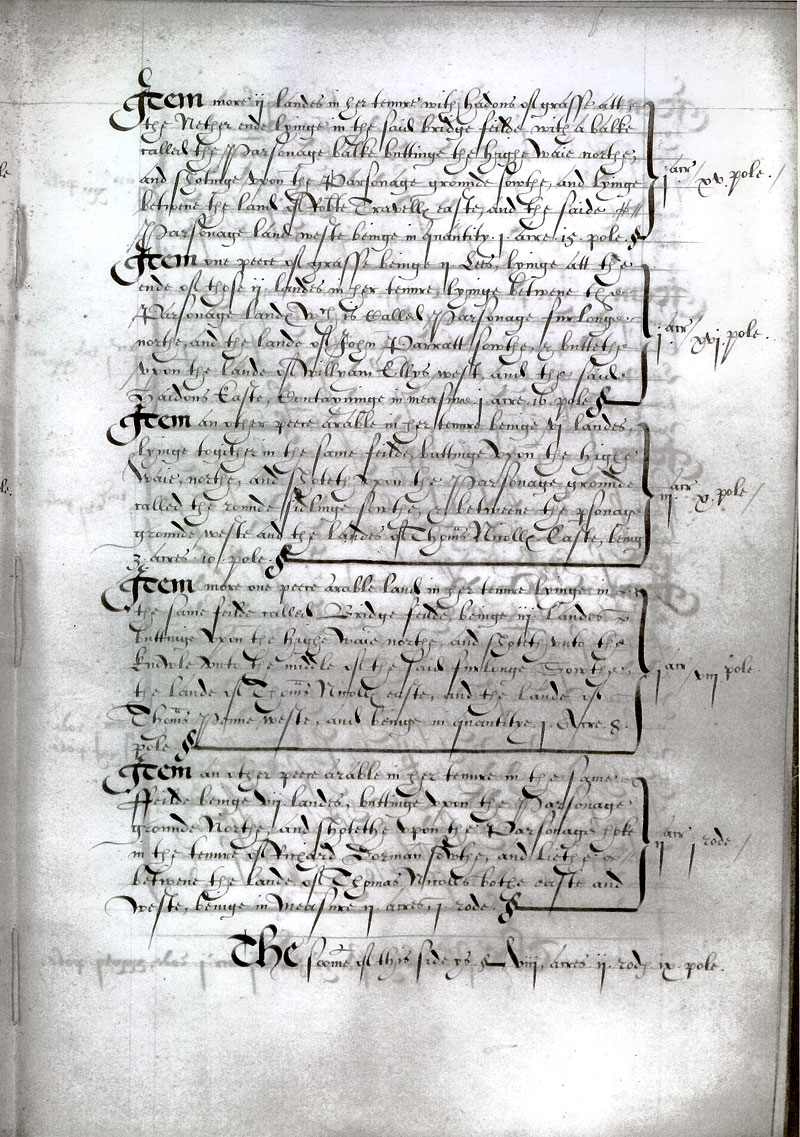 Item more ij landes in her tenure with hadons of grasse att
the Nether ende lyinge in the said bridge feilde with a balke
called the Parsonage balke buttinge the highe waie northe,
and shotinge vpon the Parsonage grounde sowthe, and lyinge
betwene the land of Robte Travell easte, and the saide
Parsonage land weste beinge in quantity .1. acre .15. pole
j acr xv. pole.
Item one peece of grasse beinge ij Lees, lyinge att the
ende of those ij landes in her tenure, lyinge betwene the
Parsonage land, wch is Called Parsonage furlonge
northe, and the lande of John Parratt sowthe, & buttethe
vpon the lande of Willyam Ellys west, and the saide
Haidons Easte, Contayninge in measure .1. acre .16. pole
j. acr xvj. pole.
Item an other peece arable in her tenure beinge vj landes,
lyinge together in the same feilde, buttinge vpon the highe
waie, northe, and shoteth vpon the Parsonage grounde
called the rounde sidlinge sowthe, & betweene the psonage
grounde weste and the landes of Thoms Nicolls Easte, being
3. acres .10. pole.
iij. acr x. pole
Item more one peece arable land in her tenure lyinge in
the same feilde called Bridge feilde, beinge iij landes
buttinge vpon the highe waie northe, and shoteth vnto the
knowle vnto the middle of the said furlonge Sowthe,
the lande of Thoms Nicolls easte, and the lande of
Thoms Penne weste, and beinge in quantitye .1. Acre .8.
pole
j acr viij pole.
Item an other peece arable in her tenure in the same
ffeilde beinge vij landes, buttinge vpon the Parsonage
grounde Northe, and shotethe vpon the Parsonage
in the tenure of Richard Dorman sowthe, and liethe
betwene the lande of Thomas Nicolls bothe easte and
weste, beinge in Measure ij acres, j rode.
ij acr j rode
The some of this side ys viij, acres ij. rod, ix. pole.